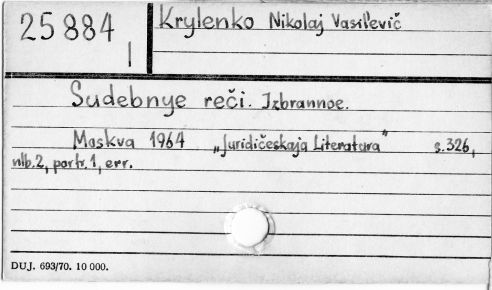 25884
1
Krylenko Nikolaj Vasil'evič
Sudebnye reči. Izbrannoe.
Moskva 1964 „Juridičeskaja Literatura" s.326,
nlb.2, portr.1, err.
DUJ. 693/70. 10 000.